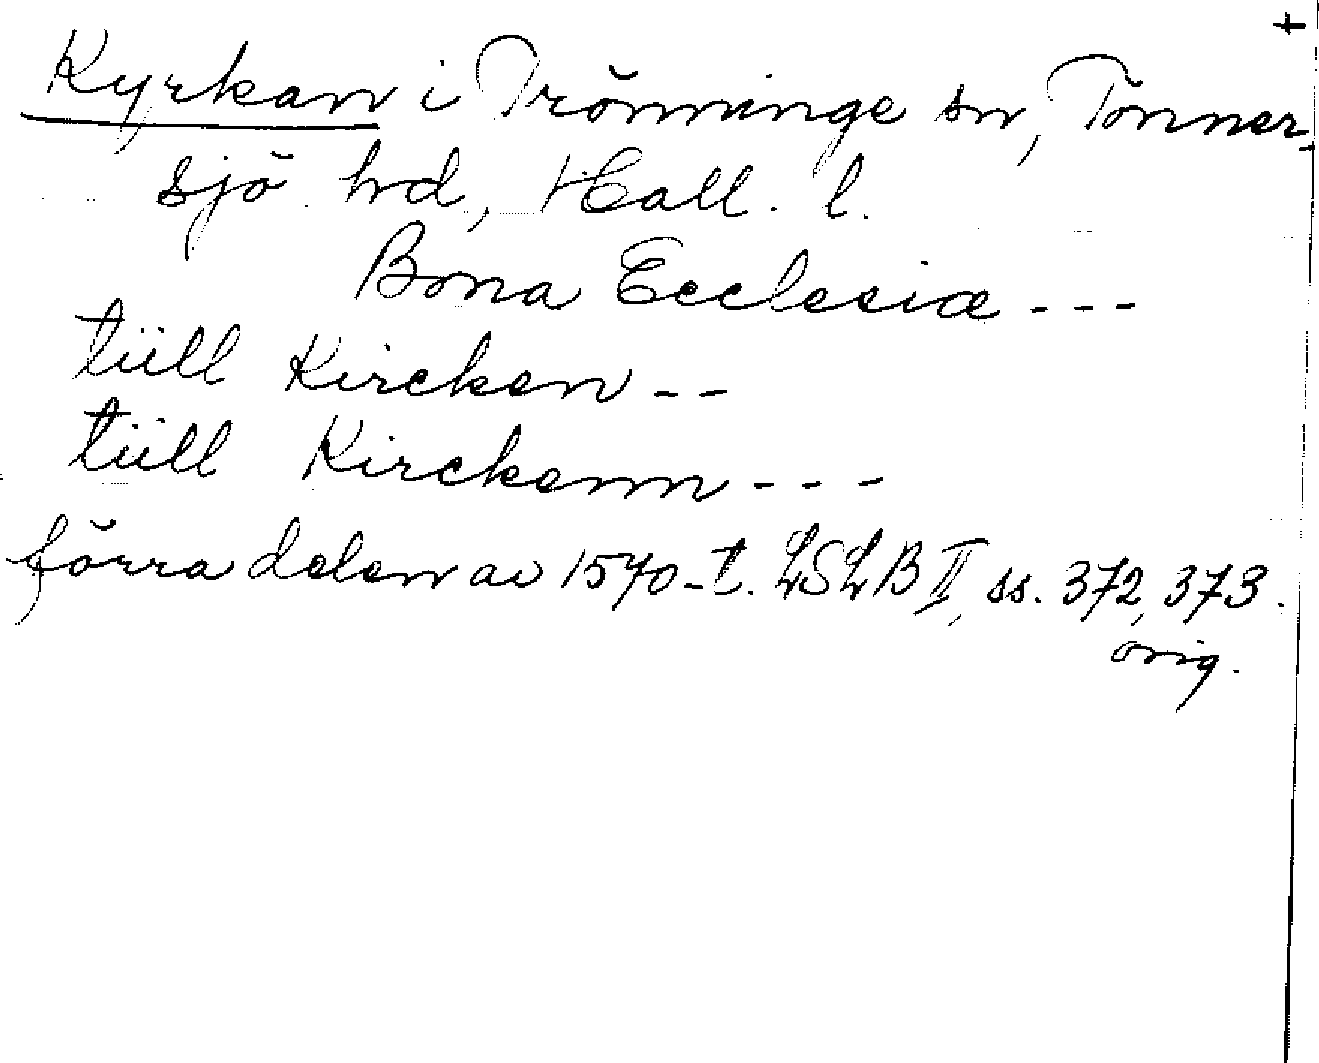 +
Kyrkan i Trönninge sn, Tönner-
sjö hd, Hall. l.
Bona Ecclesiæ - - -
tiill Kircken - -
tiill Kirckenn - - -
förra delen av 1570-t. LSLB II, ss. 372, 373.
orig.